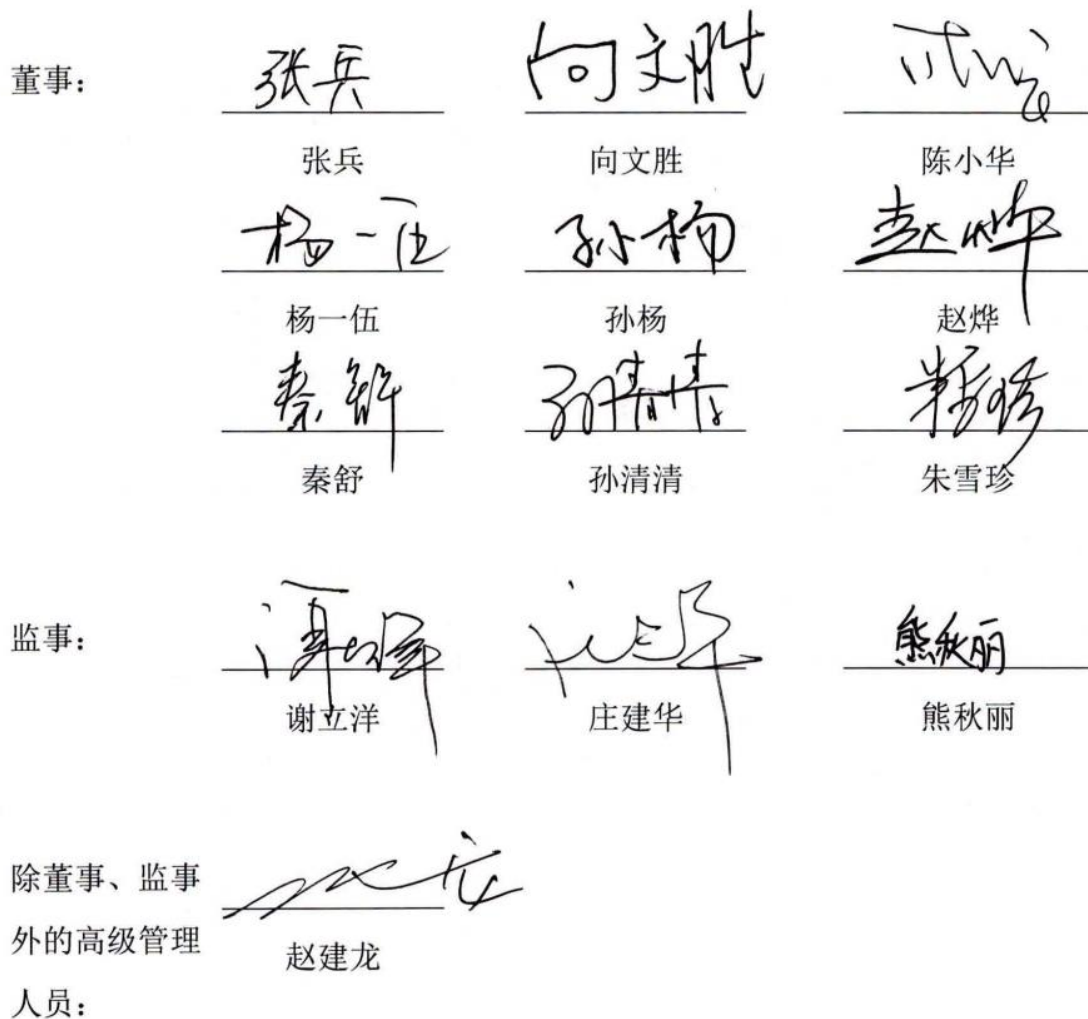 董事： 张兵 向文胜
张兵 向文胜 陈小华
杨一伍 孙杨 赵烨
杨一伍 孙杨 赵烨
秦舒 孙清清
秦舒 孙清清 朱雪珍
监事： 熊秋丽
谢立洋 庄建华 熊秋丽
除董事、监事
外的高级管理
赵建龙
人员：